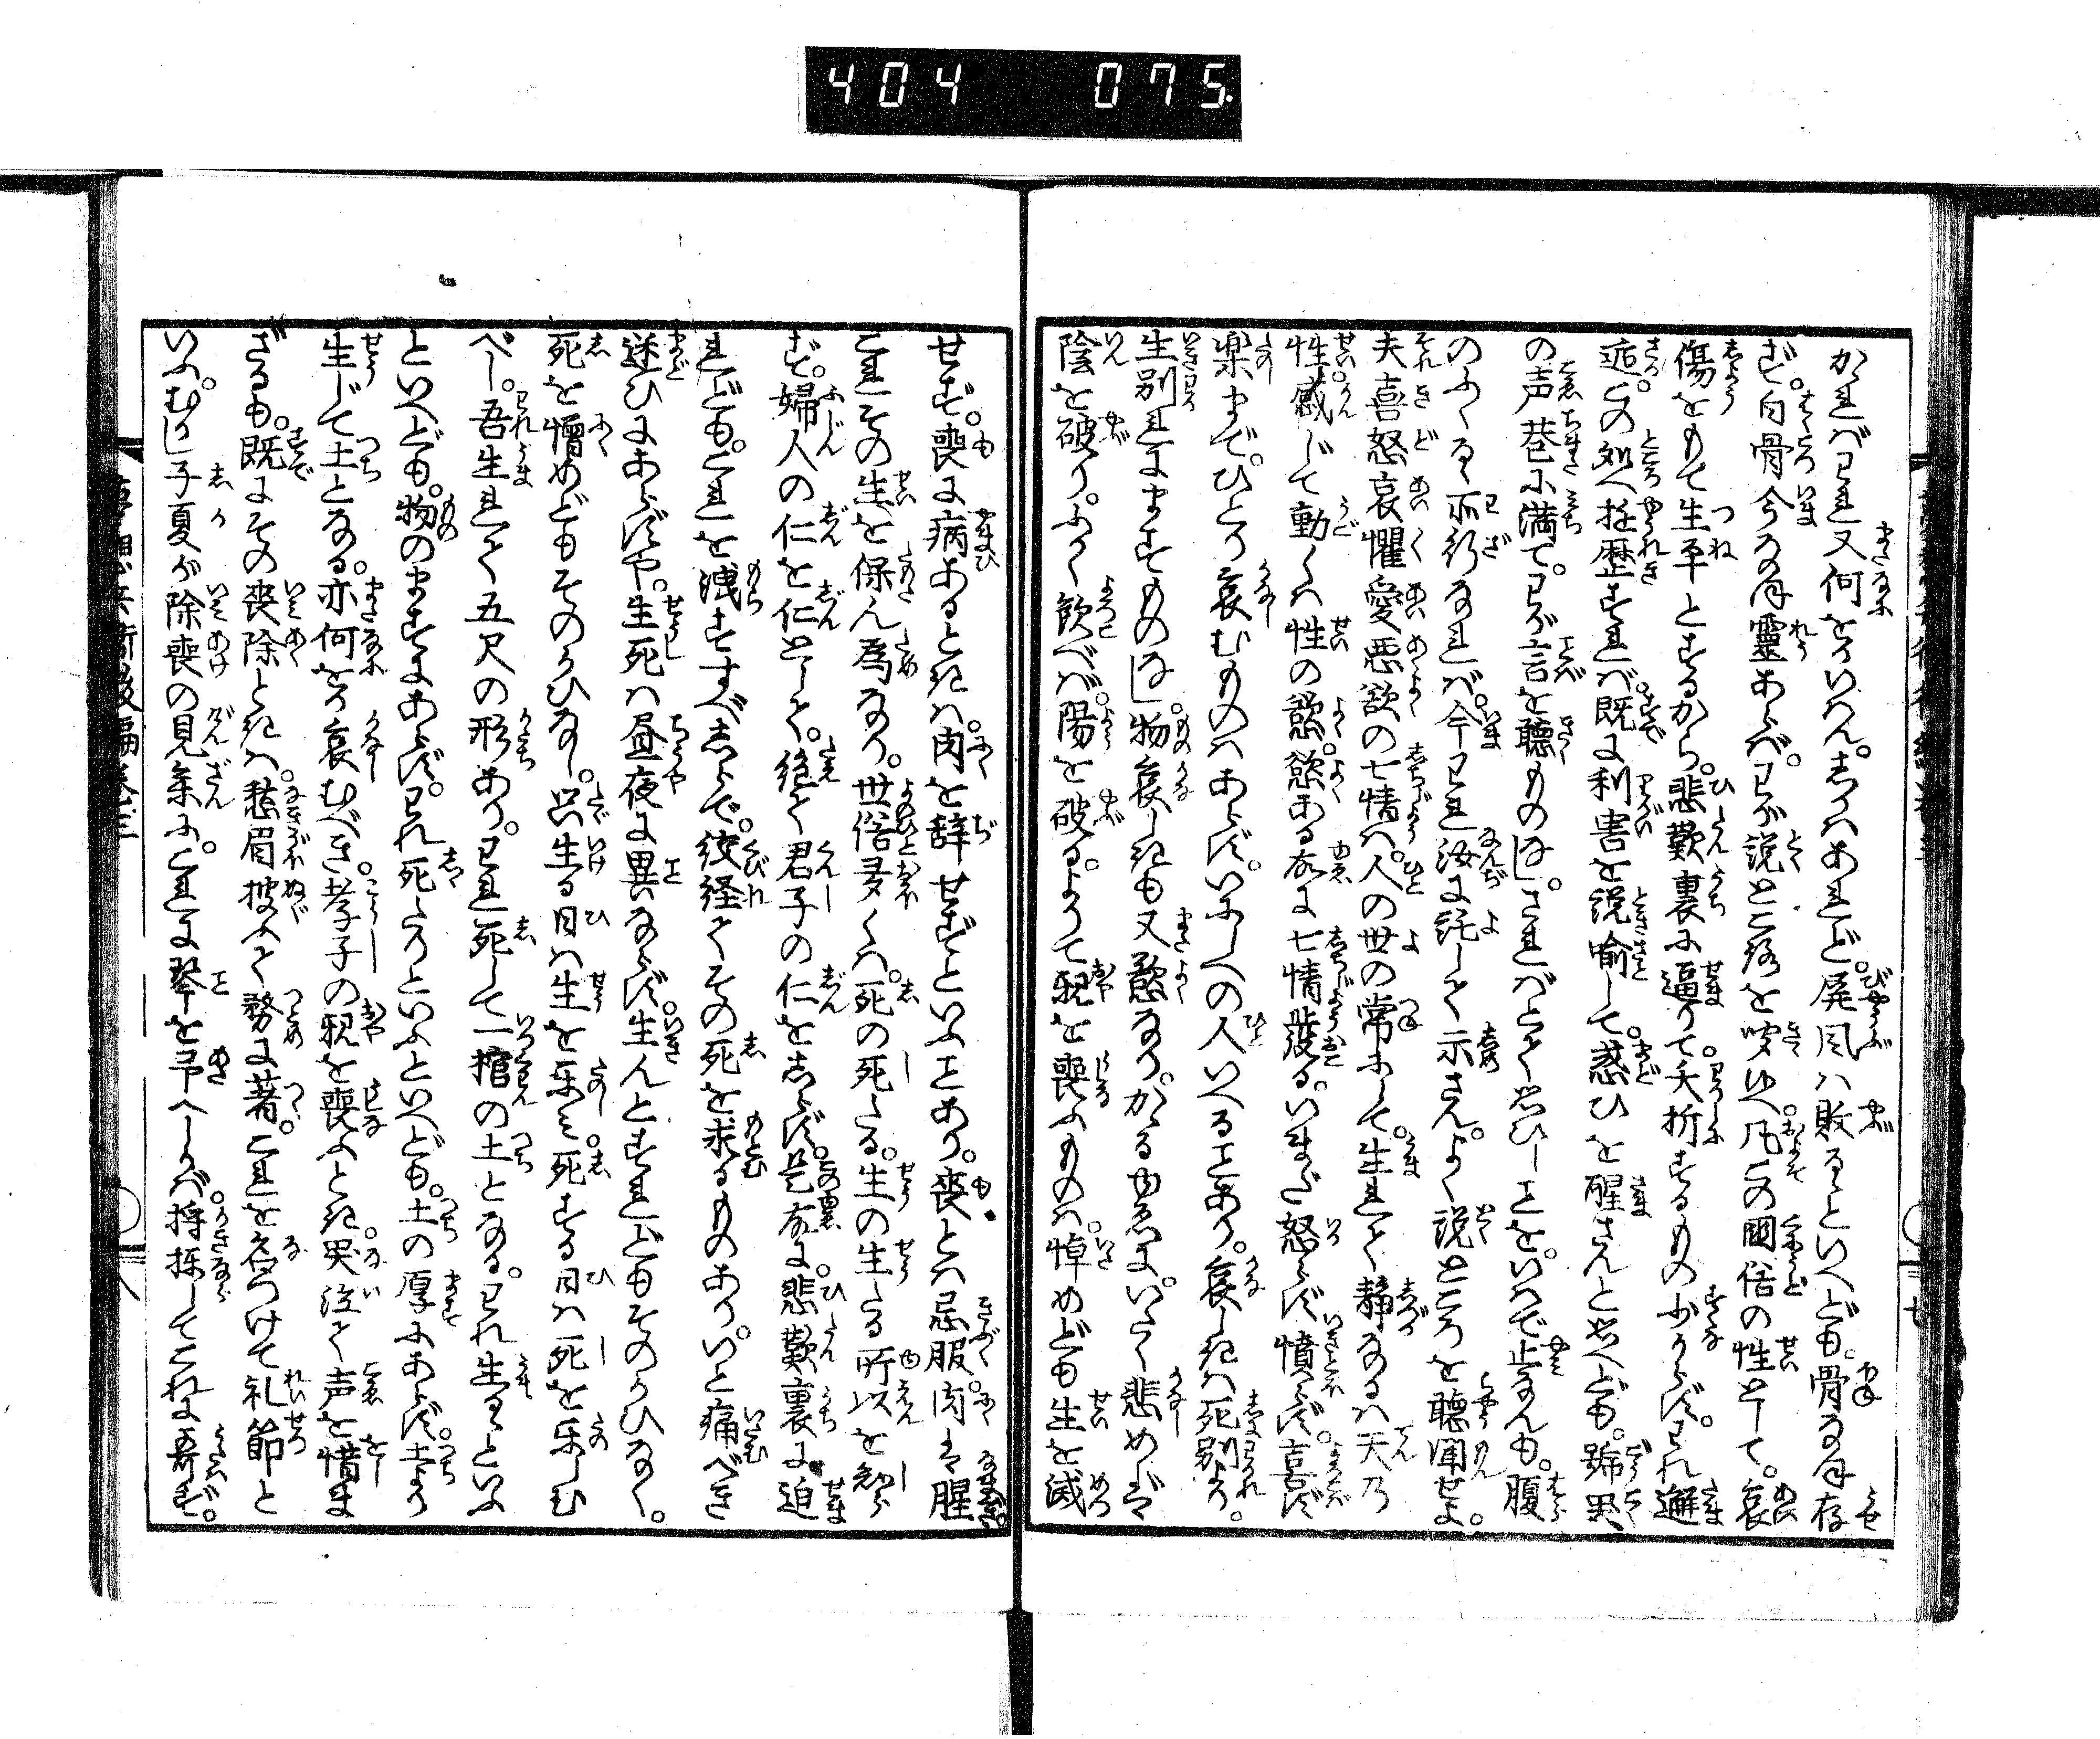 404 075
かればわれ又何をかいはん。しかはあれど。屏風は敗るといへども。骨なほ存
ず。白骨今なほ霊あらば。わが説ところを聴ゆへ。凡この国俗の性として。哀
傷をもて生平とするから。悲歎裏に逼りて。夭折するもの少からず。われ邂
逅この処へ遊歴すれば。既に利害を説喩して。惑ひを醒さんと思へども。号哭
の声巷に満て。わが言を聴ものなし。さればとて思ひしことを。いはで止なんも。腹
のふくるゝ所行なれば。今われ汝に託して示さん。よく説ところを聴聞せよ。
夫喜怒哀懼愛悪欲の七情は。人の世の常にして。生れて静なるは天の
性。感じて動くは性の慾。慾ある故に七情発る。いまだ怒らず憤らず。喜ばず
楽まで。ひとり哀むものはあらず。いにしへの人いへることあり。哀しきは死別より。
生別れにますものなし。物哀しきも又慾なり。かかるゆゑに。いたく悲めば
陰を破り。ふかく飲べば。陽を破る。よりて親を喪ふものは。悼めども生を滅
せず。喪に病あるときは。肉を辞せずといふことあり。喪とは忌服。肉は腥
これその生を保ん為なり。世俗多くは。死の死たる。生の生たる所以を知ら
ず。婦人の仁を仁として。絶て君子の仁をしらず。是故に。悲歎裏に迫
れども。これを洩すすべしらで。絞経てその死を求るものあり。いと痛べき
迷ひにあらずや。生死は昼夜に異ならず。生んとすれどもそのかひなく。
死を憎めどもそのかひなし。只生る日は生を楽み。死する日は死を楽しむ
べし。吾生れて五尺の形あり。われ死して一棺の土となる。われ生るゝといふ
といへども。物のますにあらず。われ死たりといふといへども。土の厚にあらず。土より
生じて土となる。亦何をか哀むべき。孝子の親を喪ふとき。哭泣て声を惜ま
ざるも。既にその喪除ときは。愁眉披ふて務に著。これを名つけて礼節と
いふ。むかし子夏が除喪の見参に。これに琴を予へしかば。捋拣してこれに寄ず。